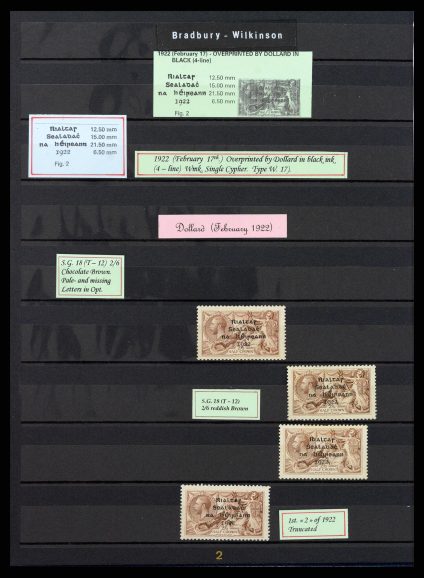 Bradbury - Wilkinson
1922 (February 17) - OVERPRINTED BY DOLLARD IN
BLACK (4-line)
Rialtas 12.50 mm
Sealadaċ 15.00 mm
na hÉireann 21.50 mm
1922 6.50 mm
Fig. 2
Rialtas 12.50 mm
Sealadaċ 15.00 mm
na hÉireann 21.50 mm
1922 6.50 mm
Fig. 2
1922 (February 17th.) Overprinted by Dollard in black ink,
(4 – line) Wmk, Single Cypher. Type W. 17).
Dollard (February 1922)
S.G. 18 (T – 12) 2/6
Chocolate Brown.
Pale- and missing
Letters in Opt.
Rialtas
Sealadaċ
na hÉireann
1922
HALF CROWN
S.G. 19 (T – 12)
2/6 reddish Brown
Rialtas
Sealadaċ
na hÉireann
1922
HALF CROWN
Rialtas
Sealadaċ
na hÉireann
1922
HALF CROWN
Rialtas
Sealadaċ
na hÉireann
1922
HALF CROWN
1st. « 2 » of 1922
Truncated
2